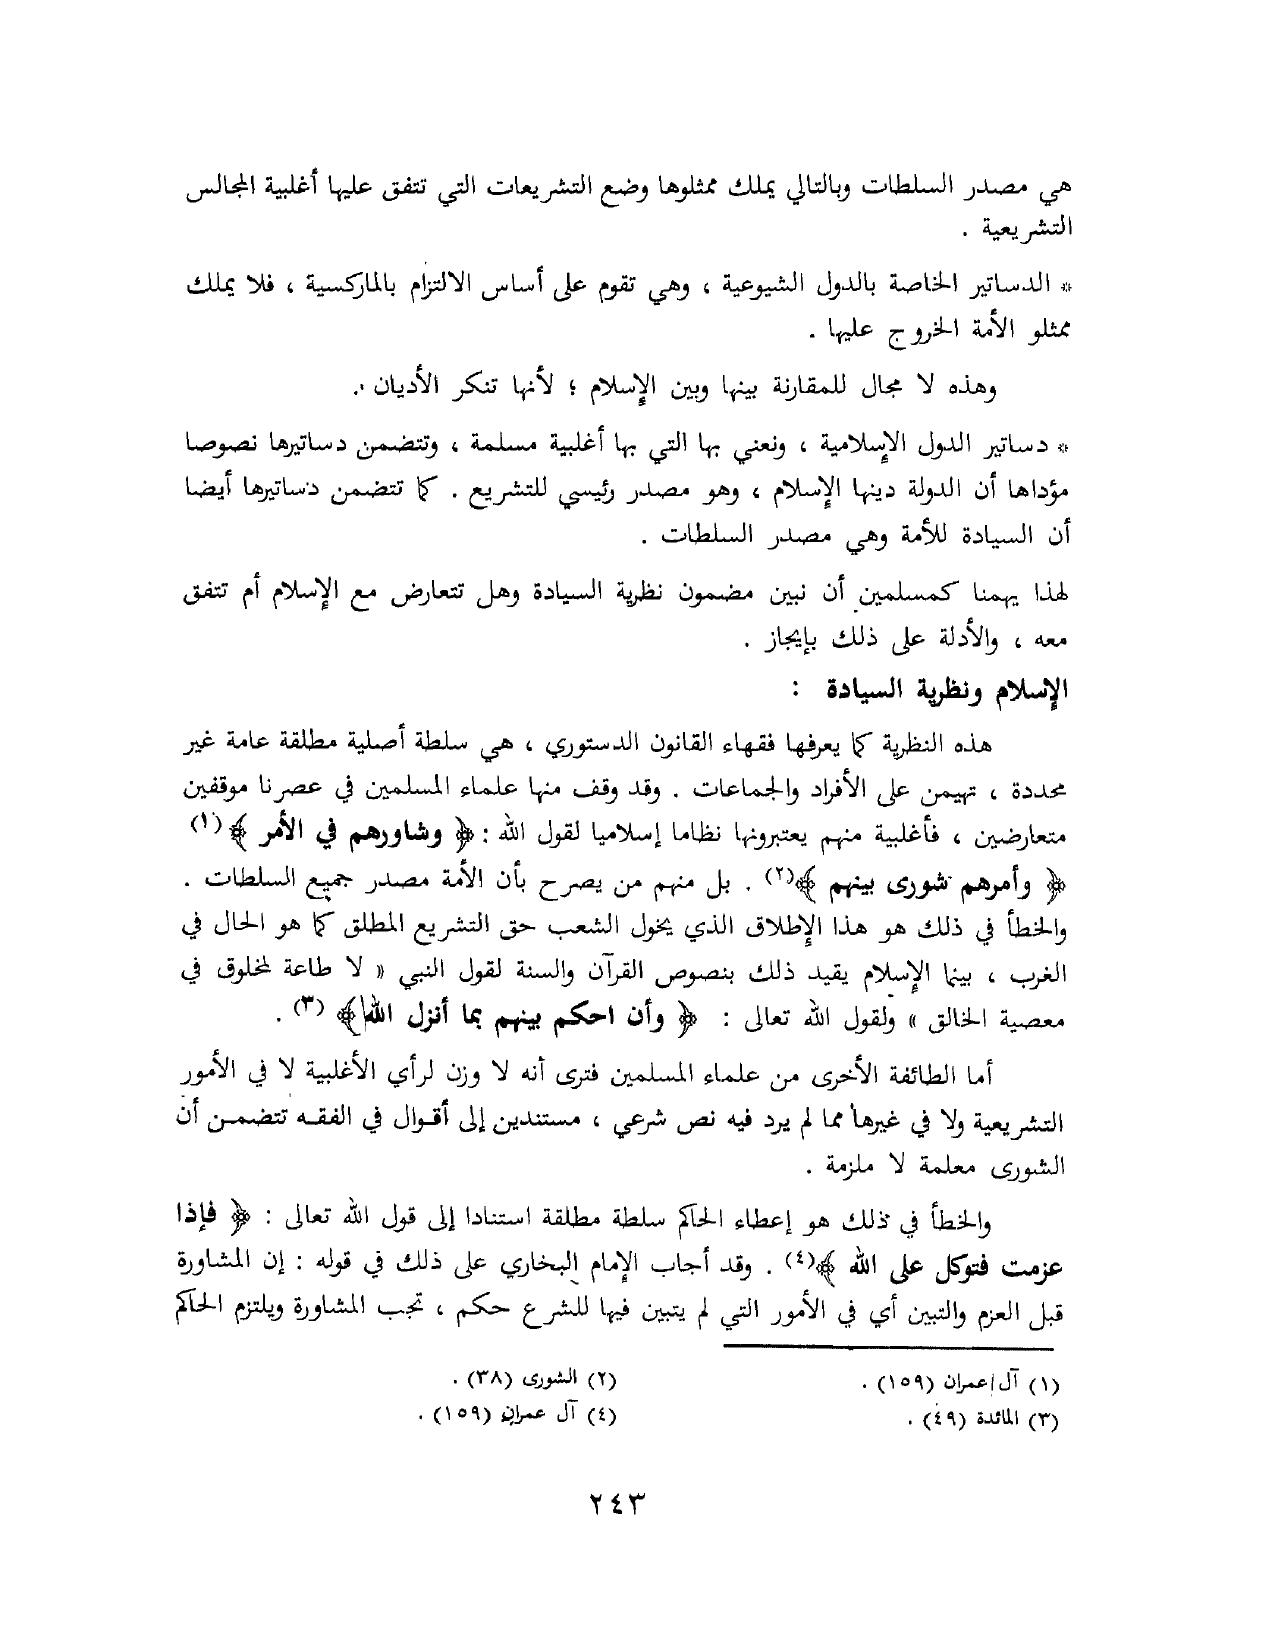 هي مصدر السلطات وبالتالي يملك ممثلوها وضع التشريعات التي تتفق عليها أغلبية المجالس
التشريعية .
* الدساتير الخاصة بالدول الشيوعية ، وهي تقوم على أساس الالتزام بالماركسية ، فلا يملك
ممثلو الأمة الخروج عليها .
وهذه لا مجال للمقارنة بينها وبين الإسلام ؛ لأنها تنكر الأديان .
* دساتير الدول الإسلامية ، ونعني بها التي بها أغلبية مسلمة ، وتتضمن دساتيرها نصوصا
مؤداها أن الدولة دينها الإسلام ، وهو مصدر رئيسي للتشريع . كما تتضمن دساتيرها أيضا
أن السيادة للأمة وهي مصدر السلطات .
لهذا يهمنا كمسلمين أن نبين مضمون نظرية السيادة وهل تتعارض مع الإسلام أم تتفق
معه ، والأدلة على ذلك بإيجاز .
الإسلام ونظرية السيادة :
هذه النظرية كما يعرفها فقهاء القانون الدستوري ، هي سلطة أصلية مطلقة عامة غير
محددة ، تهيمن على الأفراد والجماعات . وقد وقف منها علماء المسلمين في عصرنا موقفين
متعارضين ، فأغلبية منهم يعتبرونها نظاما إسلاميا لقول الله : ﴿ وشاورهم في الأمر ﴾(١)
﴿ وأمرهم شورى بينهم ﴾(٢) . بل منهم من يصرح بأن الأمة مصدر جميع السلطات .
والخطأ في ذلك هو هذا الإطلاق الذي يخول الشعب حق التشريع المطلق كما هو الحال في
الغرب ، بينما الإسلام يقيد ذلك بنصوص القرآن والسنة لقول النبي « لا طاعة لمخلوق في
معصية الخالق » ولقول الله تعالى : ﴿ وأن احكم بينهم بما أنزل الله ﴾ (٣) .
أما الطائفة الأخرى من علماء المسلمين فترى أنه لا وزن لرأي الأغلبية لا في الأمور
التشريعية ولا في غيرها مما لم يرد فيه نص شرعي ، مستندين إلى أقوال في الفقه تتضمن أن
الشورى معلمة لا ملزمة .
والخطأ في ذلك هو إعطاء الحاكم سلطة مطلقة استنادا إلى قول الله تعالى : ﴿ فإذا
عزمت فتوكل على الله ﴾(٤) . وقد أجاب الإمام البخاري على ذلك في قوله : إن المشاورة
قبل العزم والتبين أي في الأمور التي لم يتبين فيها للشرع حكم ، تجب المشاورة ويلتزم الحاكم
(١) آل عمران (١٥٩) .
(٢) الشورى (٣٨) .
(٣) المائدة (٤٩) .
(٤) آل عمران (١٥٩) .
٢٤٣